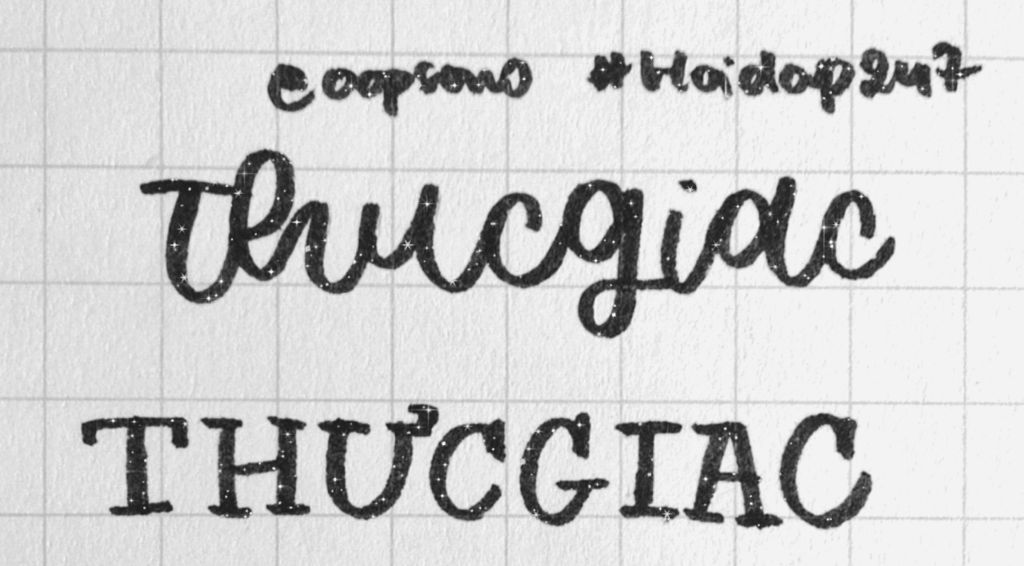 @oopsono #Hoidap247
Thucgiac
THƯCGIAC